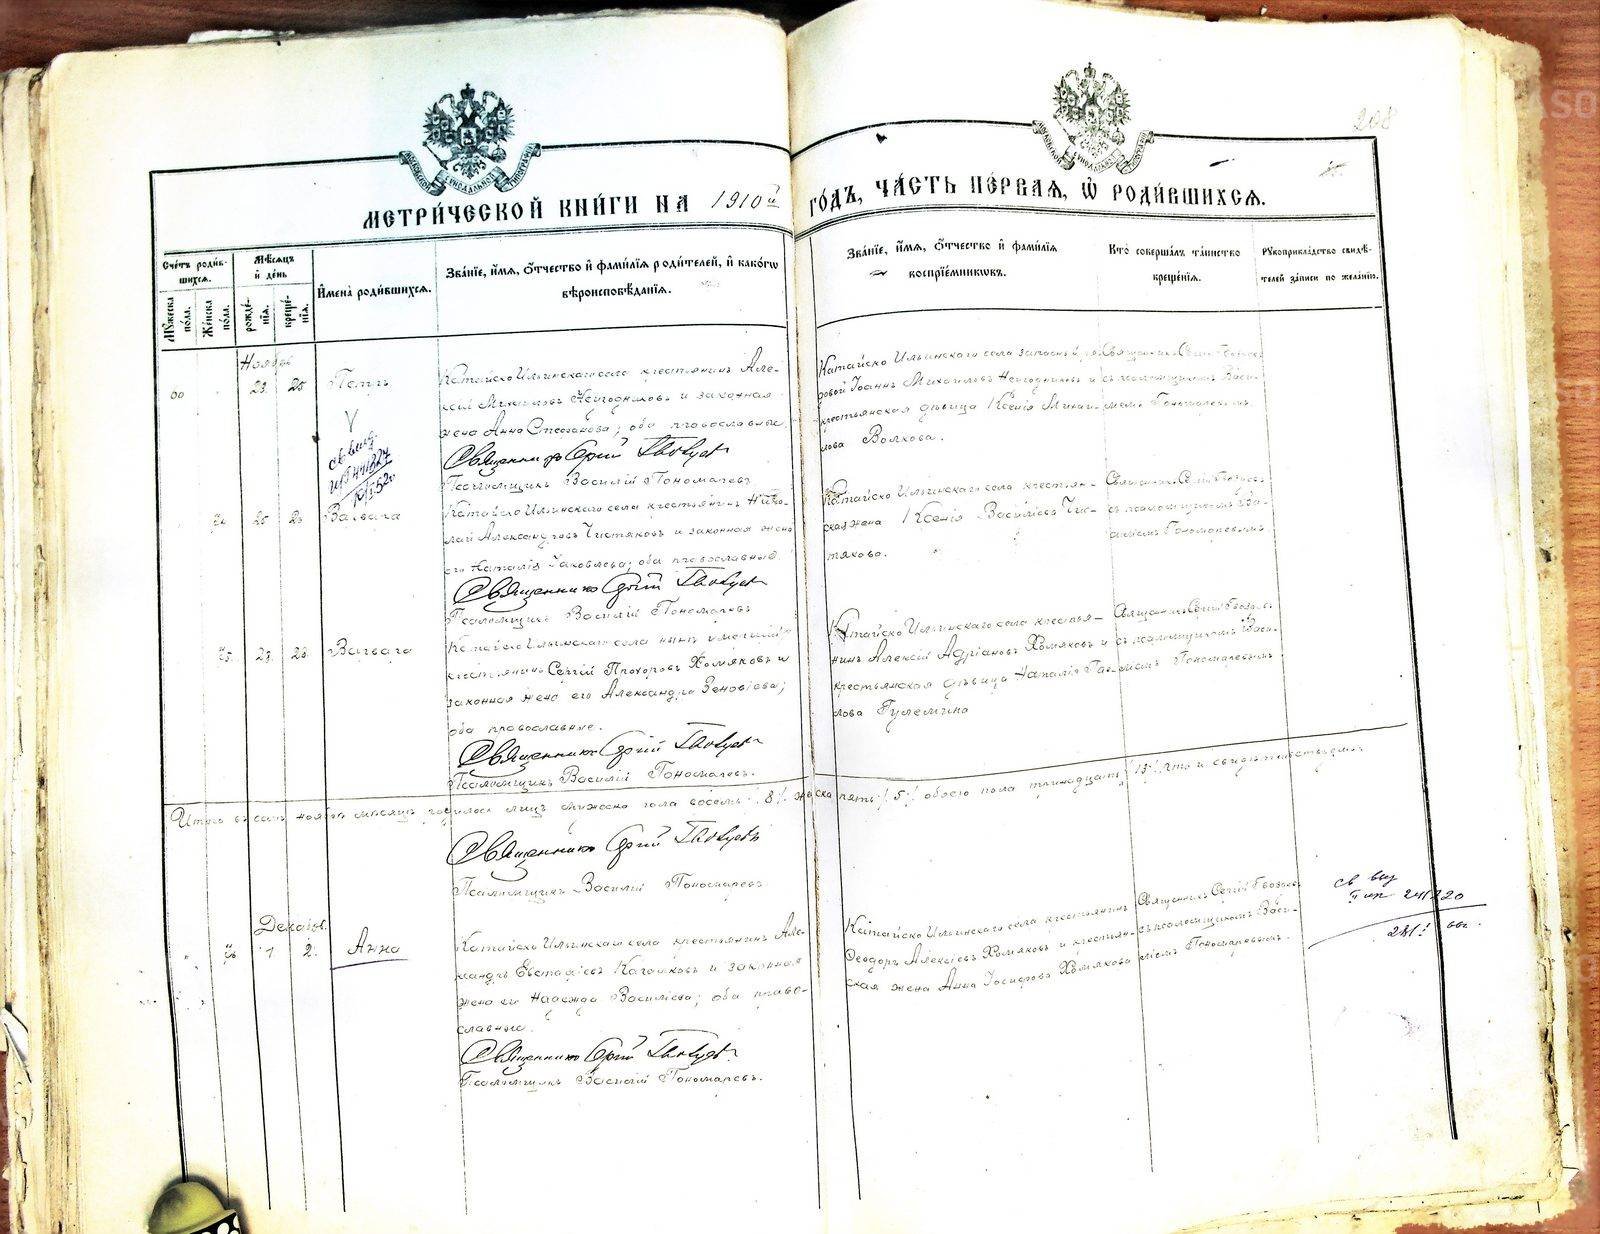 208
МОСКОВСКОЙ СѴНОДАЛЬНОЙ ТИПОГРАФІИ
МОСКОВСКОЙ СѴНОДАЛЬНОЙ ТИПОГРАФІИ
МЕТРИ́ЧЕСКОЙ КНИ́ГИ НА 1910й ГО́ДЪ, ЧА́СТЬ ПЕ́РВАѦ, Ѡ҆ РОДИ́ВШИХСѦ.
Сче́тъ роди́вшихсѧ.
Мꙋ́жеска по́ла.
Же́нска по́ла.
Мѣ́сѧцъ и҆ де́нь
рожде́нїѧ.
креще́нїѧ.
И҆мена̀ роди́вшихсѧ.
Зва́нїе, и҆́мѧ, ѻ҆́тчество и҆ фами́лїѧ роди́телей, и҆ како́гѡ
вѣроисповѣ́данїѧ.
Зва́нїе, и҆́мѧ, ѻ҆́тчество и҆ фами́лїѧ
воспрїе́мникѡвъ.
Кто̀ соверша́лъ та́инство
креще́нїѧ.
Рꙋкоприкла́дство свидѣ́-
телей за́писи по жела́нїю.
Ноябрь
23. 25 Петръ
Катайско Ильинскаго села крестьянинъ Але-
ксій Михаиловъ Негодяковъ и законная
жена Анна Стефанова; оба православные.
Священникъ Сергій Гвоздевъ
Псаломщикъ Василій Пономаревъ
Катайско Ильинскаго села запасный ря-
довой Іоаннъ Михаиловъ Негодяковъ и
крестьянская дѣвица Ксенія Михаи-
лова Волкова.
Священникъ Сергій Гвоздевъ
съ псаломщикомъ Васи-
ліемъ Пономаревымъ.
свид.
25 Варвара
Катайско Ильинскаго села крестьянинъ Нико-
лай Александровъ Чистяковъ и законная жена
его Наталія Яковлева; оба православные.
Священникъ Сергій Гвоздевъ
Псаломщикъ Василій Пономаревъ
Катайско Ильинскаго села крестьян-
ская жена Ксенія Василіева Чис-
тякова.
Священникъ Сергій Гвоздевъ
съ псаломщикомъ Ва-
силіемъ Пономаревымъ
5. 28. 28. Варвара
Катайско Ильинскаго села нынѣ умершій
крестьянинъ Сергій Прохоровъ Хомяковъ и
законная жена его Александра Зеновіева;
оба православные.
Священникъ Сергій Гвоздевъ
Псаломщикъ Василій Пономаревъ.
Катайско Ильинскаго села крестья-
нинъ Алексій Адріановъ Хомяковъ и
крестьянская дѣвица Наталія
лова Гулемина
Священникъ Сергій Гвоздевъ
съ псаломщикомъ Васи-
ліемъ Пономаревымъ
Итого въ семъ ноябрѣ мѣсяцѣ родилось лицъ мужеска пола восемь /8/ женска пять /5/ обоего пола тринадцать /13/, что и свидѣтельствуемъ
Священникъ Сергій Гвоздевъ
Псаломщикъ Василій Пономаревъ
Декабрь.
1 2. Анна
Катайско Ильинскаго села крестьянинъ Але-
ксандръ Евстафіевъ и законная
жена его Надежда Василіева; оба право-
славные.
Священникъ Сергій Гвоздевъ
Псаломщикъ Василій Пономаревъ.
Катайско Ильинскаго села крестьянинъ
Ѳеодоръ Алексіевъ Хомяковъ и крестьян-
ская жена Анна Іосифова Хомякова
Священникъ Сергій Гвоздевъ
съ псаломщикомъ Васи-
ліемъ Пономаревымъ.